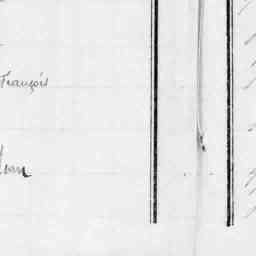 François
Jean